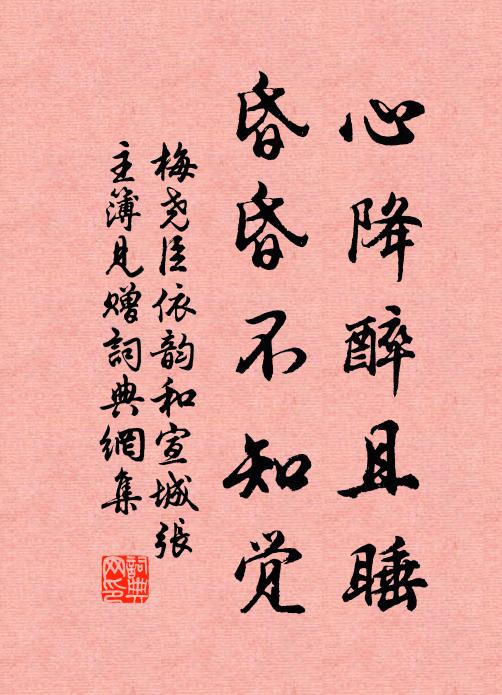 心降醉且睡
昏昏不知觉
梅尧臣依韵和宣城張
主簿見赠詞典網集
詞典
网印